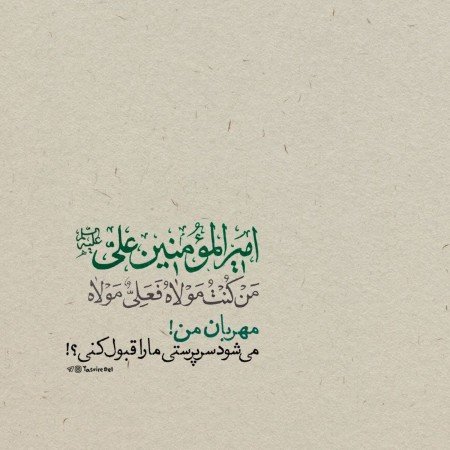 امیرالمؤمنین علیّ علیه‌السلام
مَنْ کُنْتُ مَوْلاهُ فَعَلِیٌّ مَوْلاه
مهربان من!
می‌شود سرپرستی ما را قبول کنی؟!
Tasvire Del